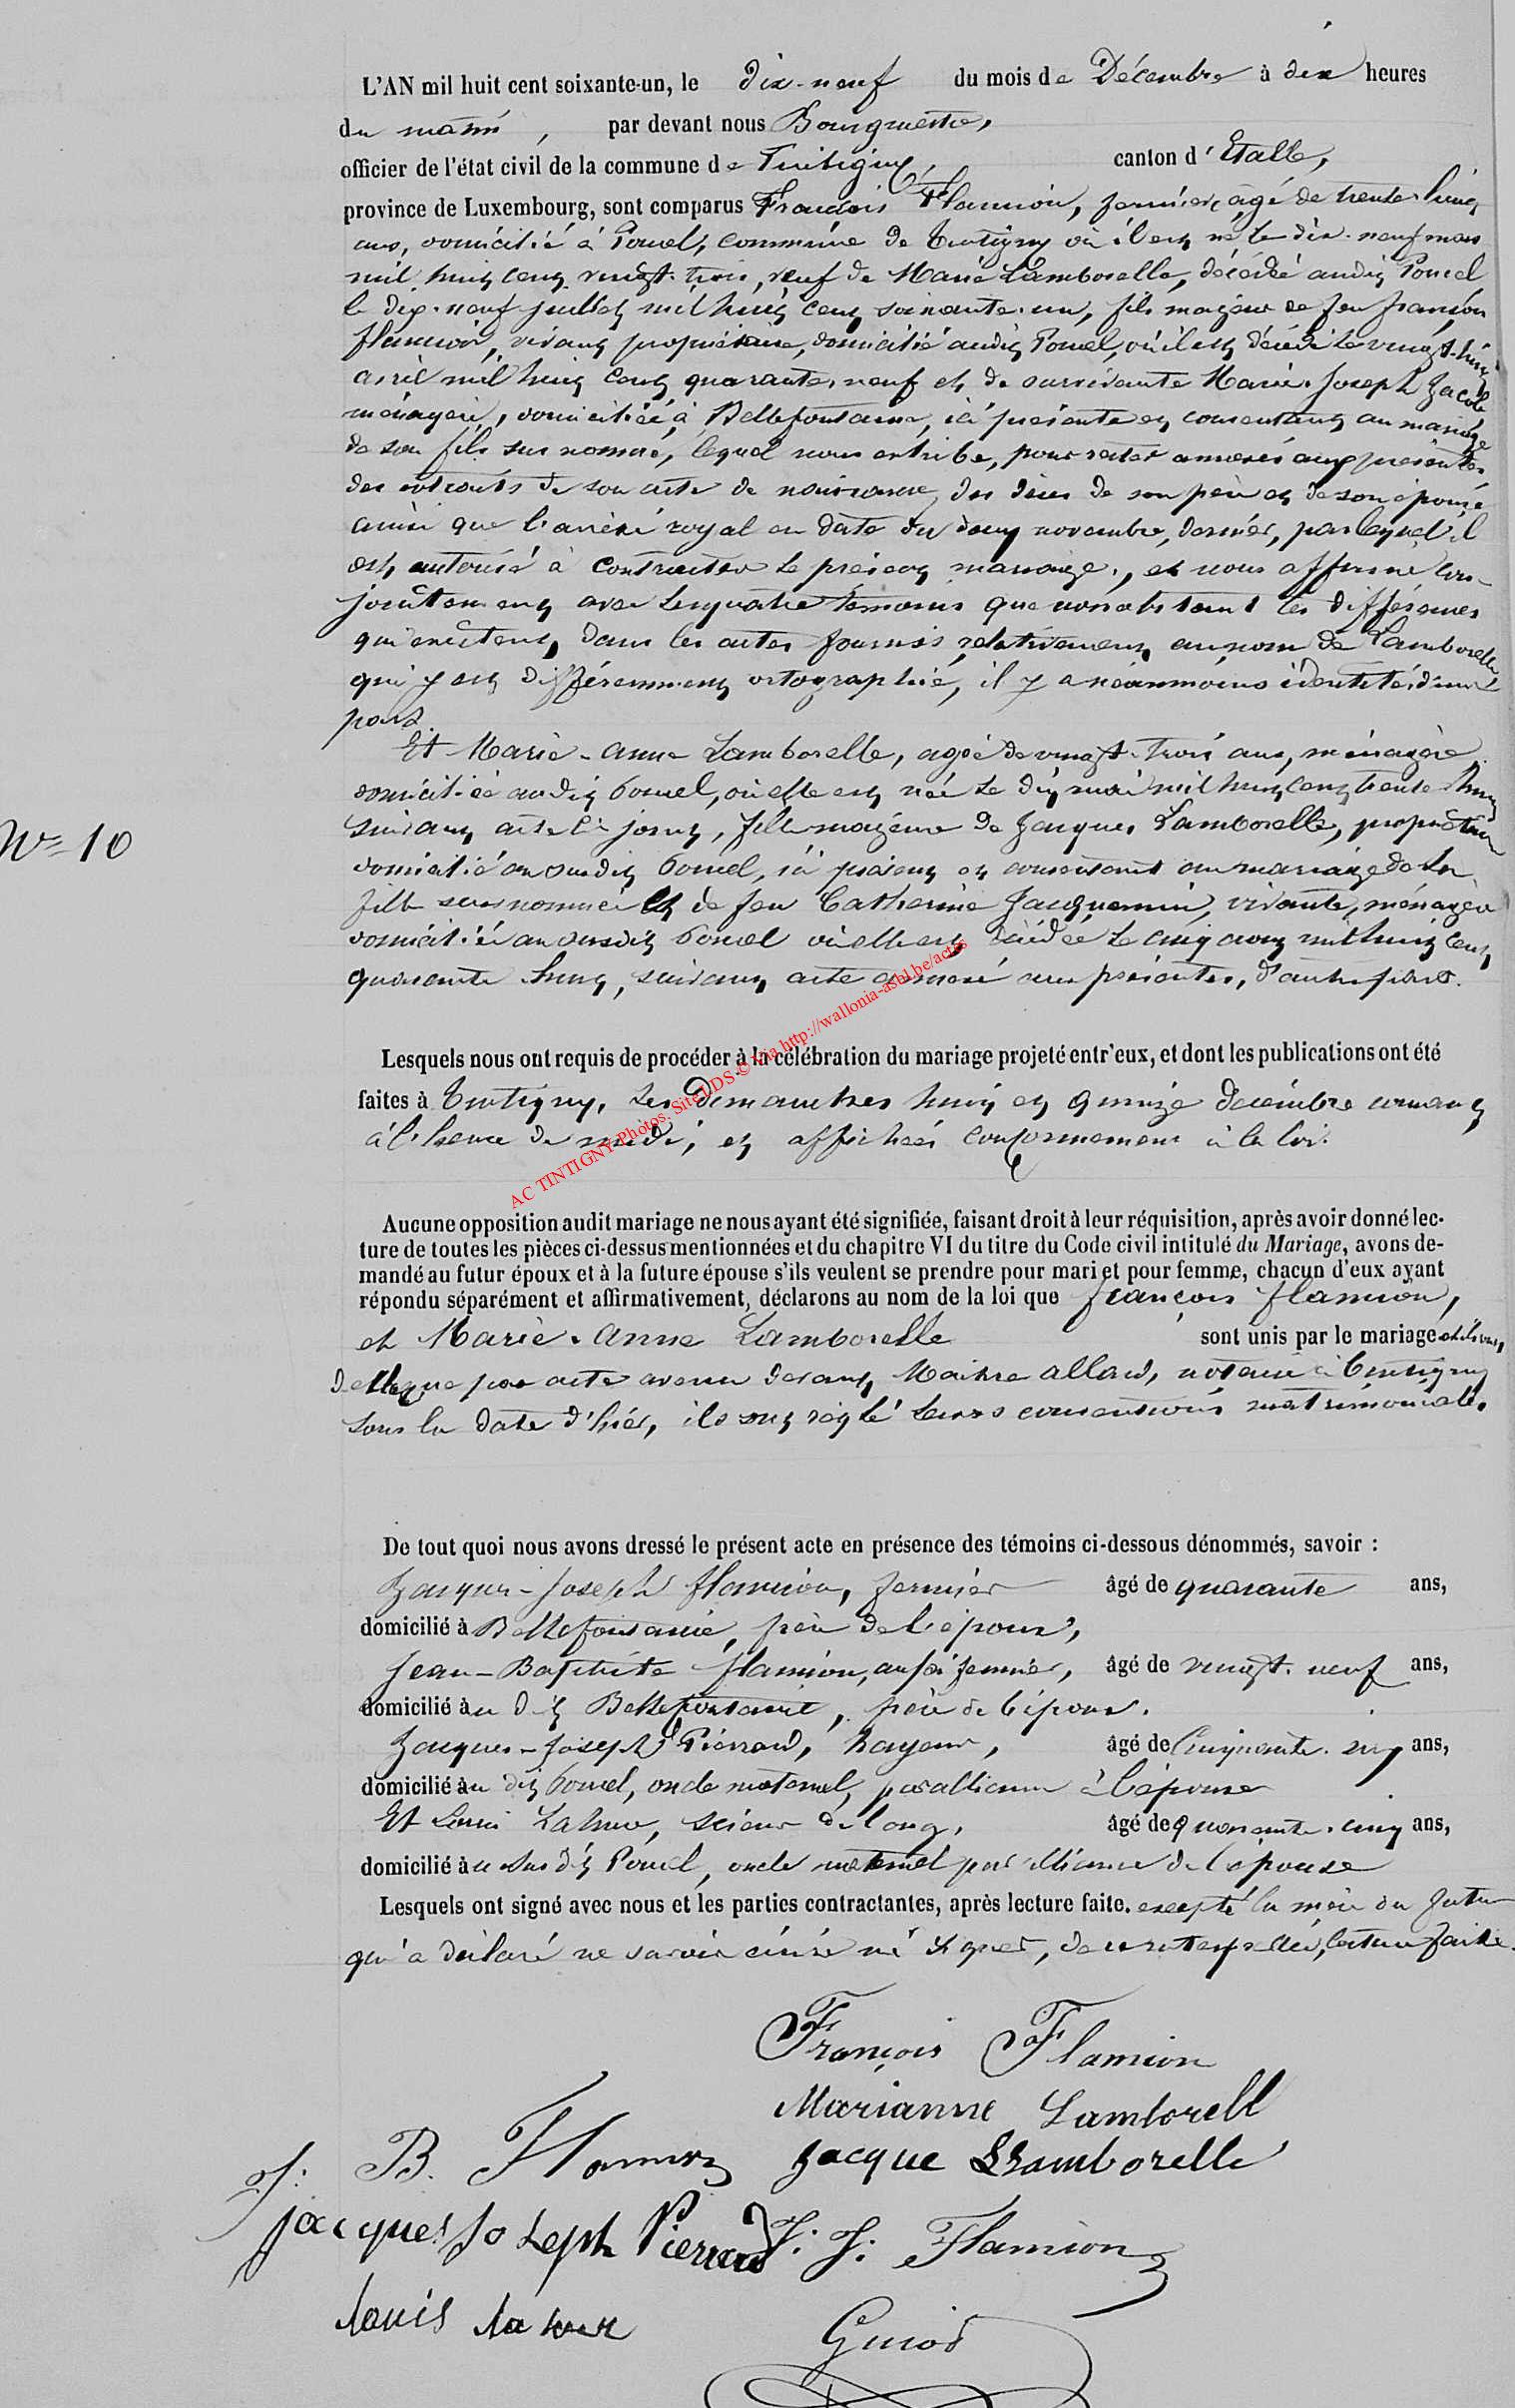 L'AN mil huit cent soixante-un, le dix-neuf du mois de Décembre à dix heures
du matin, par devant nous Bourgmestre,
officier de l'état civil de la commune de Tintigny, canton d'Etalle,
province de Luxembourg, sont comparus François Flamion, fermier, âgé de trente huit
ans, domicilié à Poncel, commune de Tintigny où il est né le dix-neuf mars
mil huit cent vingt-trois, veuf de Marie Lamborelle, décédée audit Poncel
le dix-neuf juillet mil huit cent soixante-un, fils majeur de feu François
flamion, vivant propriétaire, domicilié audit Poncel, où il est décédé le vingt-huit
avril mil huit cent quarante-neuf et de survivante Marie-Joseph Jacob
ménagère, domiciliée à Bellefontaine, ici présente et consentant au mariage
de son fils sus nommé, lequel nous exhibe, pour rester annexés aux présentes
des extraits de son acte de naissance, des décès de son père et de son épouse
ainsi que l'arrêté royal en date du deux novembre dernier, par lequel il
est autorisé à contracter le présent mariage, et nous affirme con-
jointement avec les quatre témoins que nonobstant les différences
qui existent dans les actes fournis relativement au nom de Lamborelle
qui y est différemment ortographié, il y a néanmoins identité, d'une
part.
Et Marie-Anne Lamborelle, agée de vingt-trois ans, ménagère
domiciliée audit Poncel, où elle est née le dix mai mil huit cent trente huit
suivant acte ci joint, fille majeure de Jacques Lamborelle, propriétaire
domicilié au susdit Poncel, ici présent et consentant au mariage de sa
fille susnommée et de feu Catherine Jacquemin, vivante, ménagère
domiciliée au susdit Poncel où elle est décédée le cinq août mil huit cent
quarante huit, suivant acte annexé aux présentes, d'autre part.
N° 10
Lesquels nous ont requis de procéder à la célébration du mariage projeté entr'eux, et dont les publications ont été
faites à Tintigny, les dimanches huit et quinze décembre courant
à l'heure de midi, et affichées conformément à la loi.
AC TINTIGNY-Photos. Site LDS © Via http://wallonia-asbl.be/actes
Aucune opposition audit mariage ne nous ayant été signifiée, faisant droit à leur réquisition, après avoir donné lec-
ture de toutes les pièces ci-dessus mentionnées et du chapitre VI du titre du Code civil intitulé du Mariage, avons de-
mandé au futur époux et à la future épouse s'ils veulent se prendre pour mari et pour femme, chacun d'eux ayant
répondu séparément et affirmativement, déclarons au nom de la loi que françois flamion,
et Marie-Anne Lamborelle sont unis par le mariage
que par acte avenu devant Maitre Allard, notaire à Tintigny
sous la date d'hier, ils ont réglé leurs conventions matrimoniales.
De tout quoi nous avons dressé le présent acte en présence des témoins ci-dessous dénommés, savoir :
Jacques-Joseph flamion, fermier âgé de quarante ans,
domicilié à Bellefontaine, frère de l'époux,
Jean-Baptiste flamion, aussi fermier, âgé de vingt-neuf ans,
domicilié au dit Bellefontaine, frère de l'époux.
Jacques-Joseph Pierrard, âgé de Cinquante-six ans,
domicilié au dit Poncel, oncle maternel, par alliance à l'épouse
Et Louis Lahure, scieur de long, âgé de quarante-cinq ans,
domicilié au susdit Poncel, oncle maternel par alliance de l'épouse
Lesquels ont signé avec nous et les parties contractantes, après lecture faite. excepté la mère du futur
qui a déclaré ne savoir écrire ni signer, de ce interpellée, lecture faite.
François Flamion
Marianne Lamborell
J. B. Flamion Jacque Lamborelle
Jacques Joseph Pierrard J. J. Flamion
Louis Lahure
Guiot